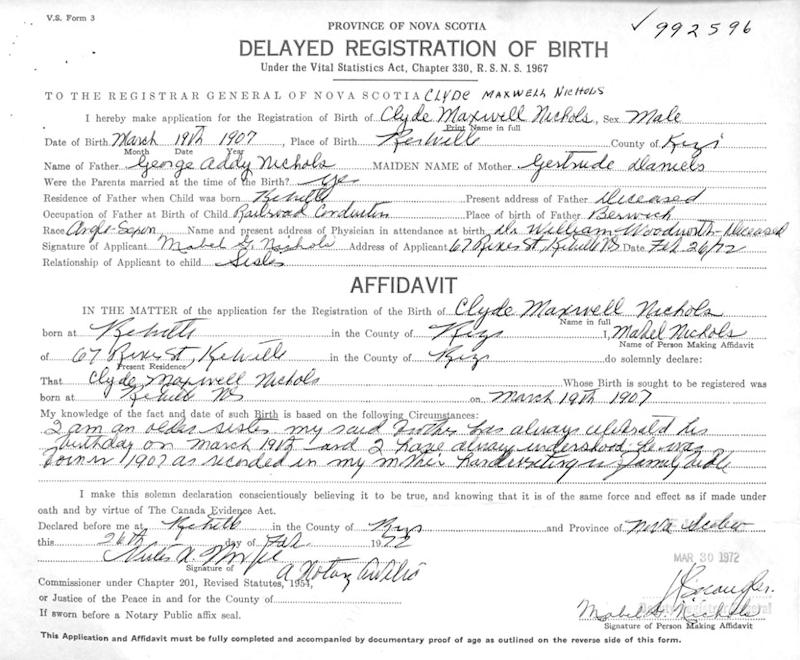 V.S. Form 3
✓ 992596
PROVINCE OF NOVA SCOTIA
DELAYED REGISTRATION OF BIRTH
Under the Vital Statistics Act, Chapter 330, R.S.N.S. 1967
TO THE REGISTRAR GENERAL OF NOVA SCOTIA CLYDE MAXWELL NICHOLS
I hereby make application for the Registration of Birth of Clyde Maxwell Nichols, Sex Male
Print Name in full
Date of Birth March 19th 1907, Place of Birth Kentville County of Kings
Month Date Year
Name of Father George Addy Nichols MAIDEN NAME of Mother Gertrude Daniels
Were the Parents married at the time of the Birth? Yes
Residence of Father when Child was born Kentville Present address of Father Deceased
Occupation of Father at Birth of Child Railroad Conductor Place of birth of Father Berwick
Race Anglo-Saxon Name and present address of Physician in attendance at birth Dr. William Woodworth - Deceased
Signature of Applicant Mabel G. Nichols Address of Applicant 67 River St, Kentville NS Date Feb 26/72
Relationship of Applicant to child Sister
AFFIDAVIT
IN THE MATTER of the application for the Registration of the Birth of Clyde Maxwell Nichols
Name in full
born at Kentville in the County of Kings I, Mabel Nichols
Name of Person Making Affidavit
of 67 River St, Kentville in the County of Kings do solemnly declare:
Present Residence
That Clyde Maxwell Nichols Whose Birth is sought to be registered was
born at Kentville NS on March 19th 1907
My knowledge of the fact and date of such Birth is based on the following Circumstances:
I am an older sister my said brother has always celebrated his
birthday on March 19th and I have always understood he was
born in 1907 as recorded in my mother handwriting in family bible
I make this solemn declaration conscientiously believing it to be true, and knowing that it is of the same force and effect as if made under
oath and by virtue of The Canada Evidence Act.
Declared before me at Kentville in the County of Kings and Province of Nova Scotia
this 26th day of Feb. 1972
MAR 30 1972
Signature of A Notary Public
Commissioner under Chapter 201, Revised Statutes, 1954,
or Justice of the Peace in and for the County of
Deputy Registrar General
Mabel G. Nichols
If sworn before a Notary Public affix seal.
Signature of Person Making Affidavit
This Application and Affidavit must be fully completed and accompanied by documentary proof of age as outlined on the reverse side of this form.